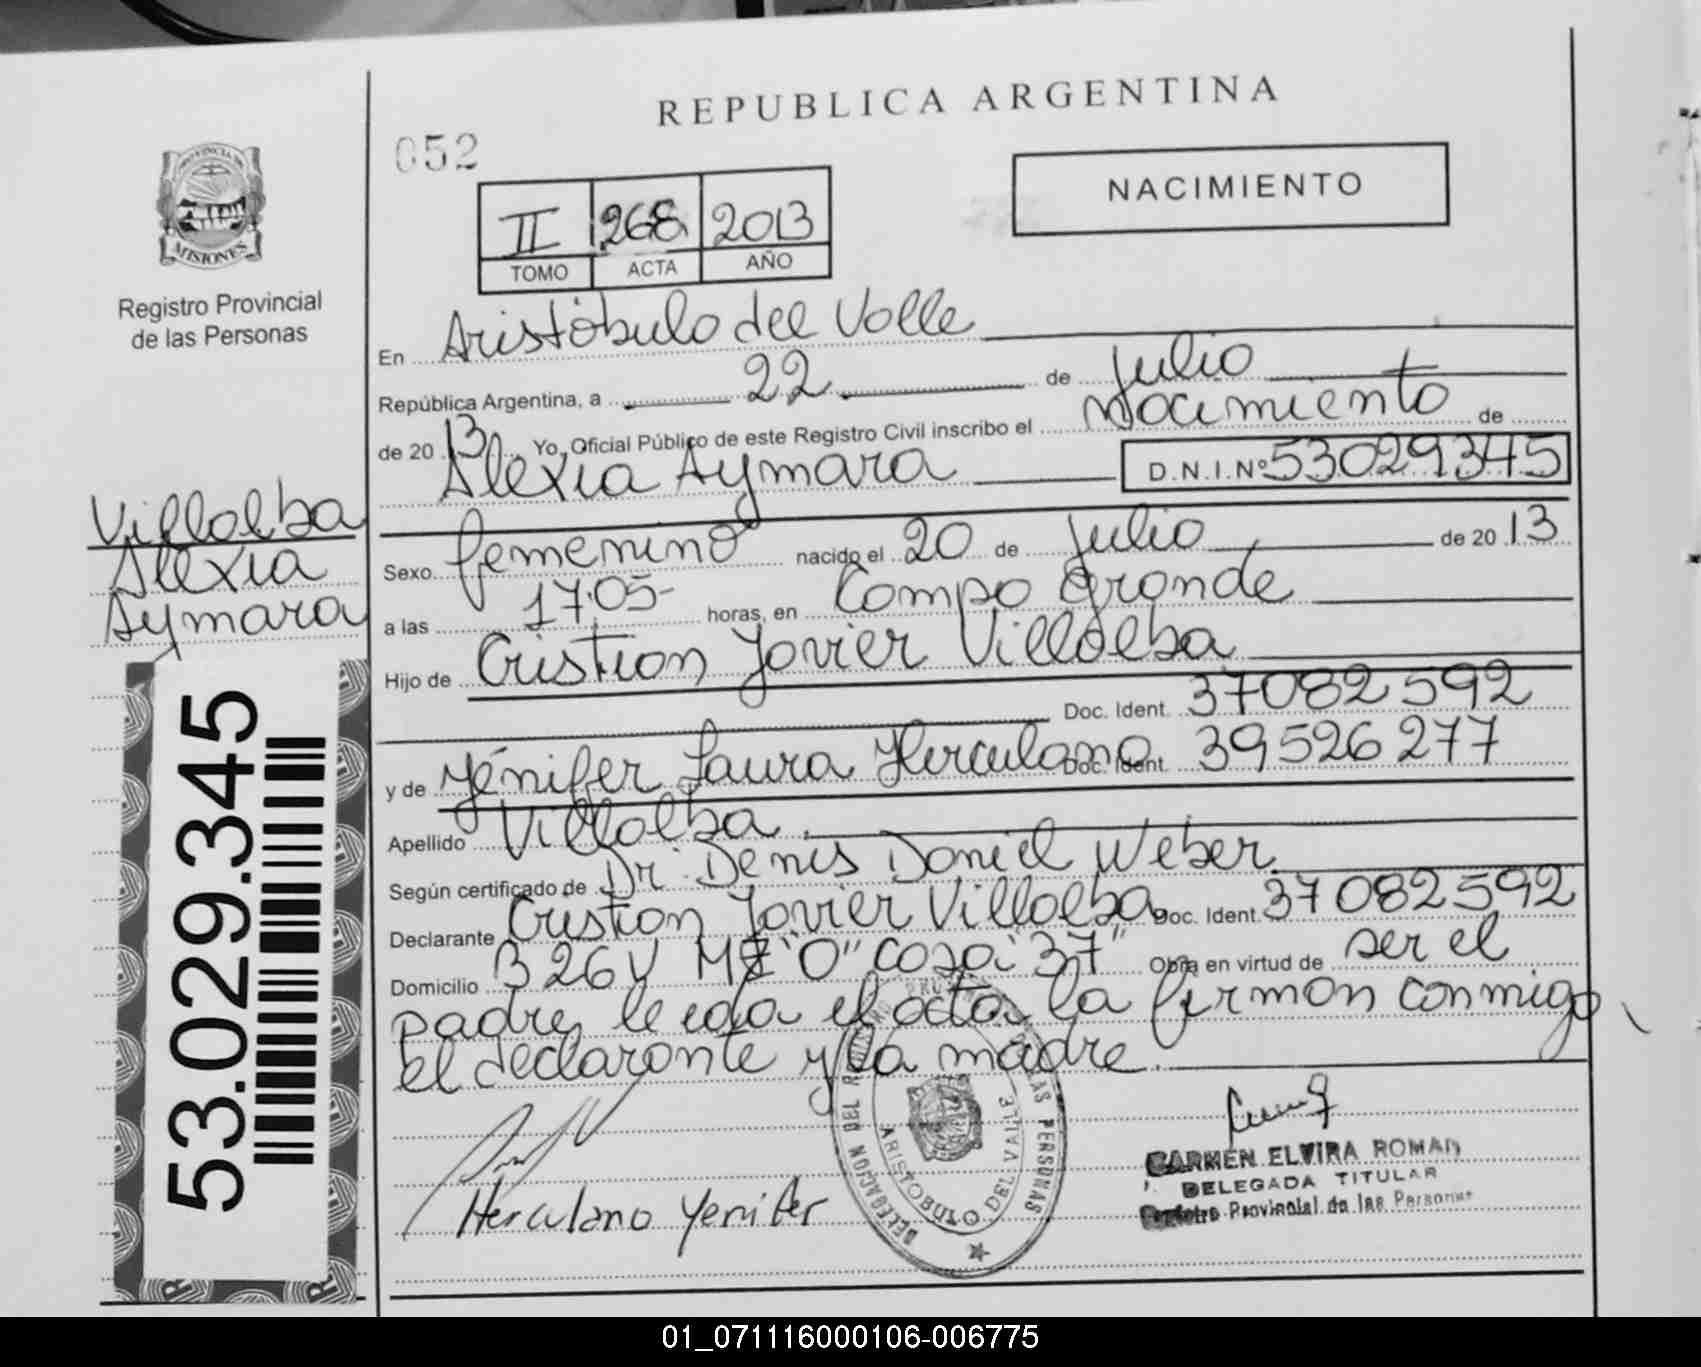 REPUBLICA ARGENTINA
052
NACIMIENTO
II 268 2013
TOMO ACTA AÑO
PROVINCIA DE
MISIONES
Registro Provincial
de las Personas
En Aristóbulo del Valle
República Argentina, a 22 de Julio
de 2013 Yo, Oficial Público de este Registro Civil inscribo el Nacimiento de
Alexia Aymara D.N.I.Nº 53029345
Villalba
Alexia
Aymara
Sexo femenino nacido el 20 de Julio de 2013
a las 17:05- horas, en Campo Grande
Hijo de Cristian Javier Villalba
Doc. Ident. 37082592
y de Yénifer Laura Herculano Doc. Ident. 39526277
Apellido Villalba.
Según certificado de Dr. Denis Daniel Weber
Declarante Cristian Javier Villalba Doc. Ident. 37082592
Domicilio B 26V MZ "O" casa "37" Obra en virtud de ser el
padre, leida el acta, la firman conmigo,
el declarante y la madre.
53.029.345
Herculano Yenifer
DELEGACION DEL PERSONAS
ARISTOBULO DEL VALLE
CARMEN ELVIRA ROMAN
DELEGADA TITULAR
Registro Provincial de las Personas
01_071116000106-006775